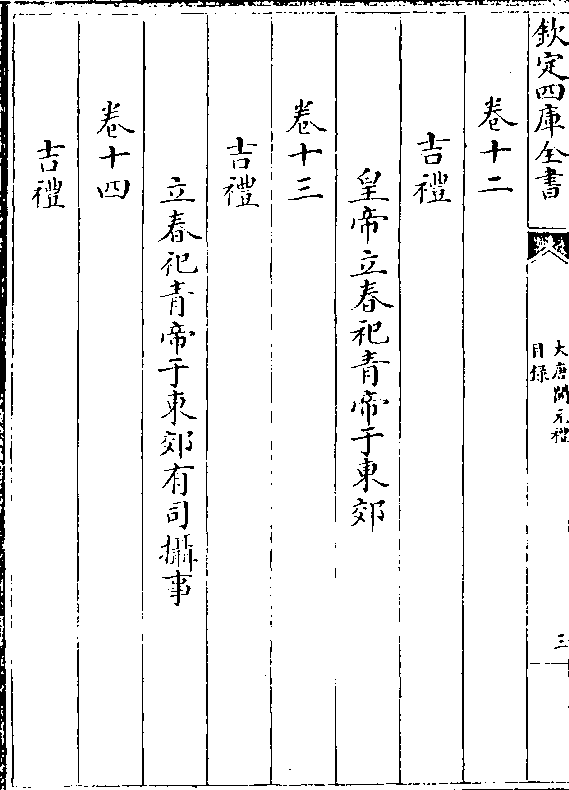 欽定四庫全書
大唐開元禮
目録
三
卷十二
吉禮
皇帝立春祀青帝于東郊
卷十三
吉禮
立春祀青帝于東郊有司攝事
卷十四
吉禮